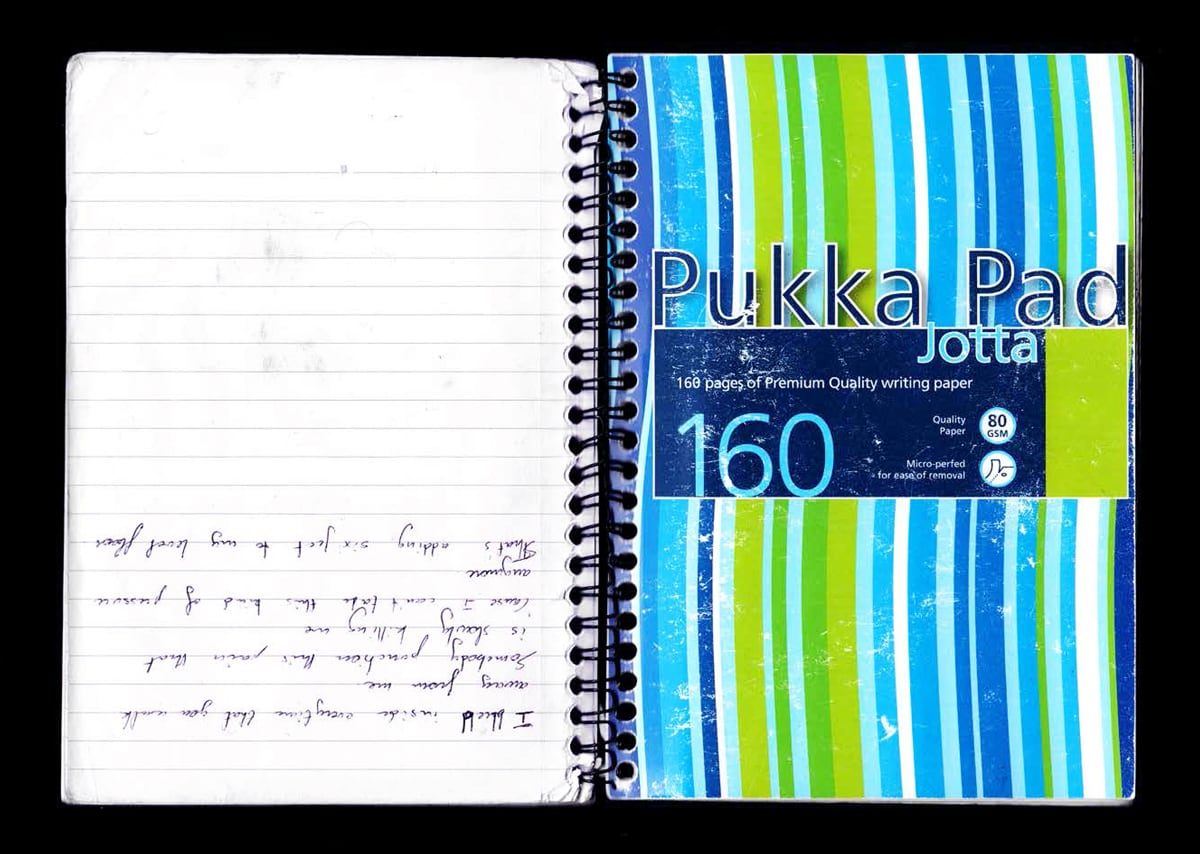 I bleed inside everytime that you walk
away from me
Somebody this pain that
is slowly killing me
Cause I can't take this kind of pressure
anymore
That's adding six feet to my level floor
Pukka Pad
Jotta
160 pages of Premium Quality writing paper
160
Quality
Paper
80
GSM
Micro-perfed
for ease of removal